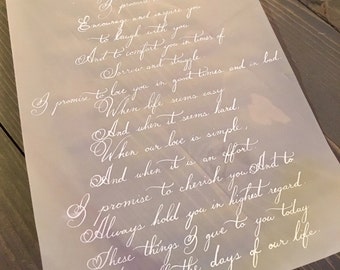 I promise
Encourage and inspire you
to laugh with you
And to comfort you in times of
Sorrow and struggle
I promise to love you in good times and in bad.
When life seems easy
And when it seems hard.
When our love is simple,
And when it is an effort.
I promise to cherish you, And to
Always hold you in highest regard
These things I give to you today
the days of our life.